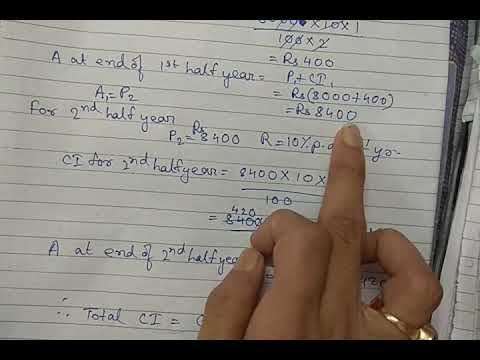 8000 × 10 × 1
100 × 2
= Rs 400
A at end of 1st half year = P₁ + CI₁
A₁ = P₂ = Rs (8000+400)
= Rs 8400
For 2nd half year
P₂ = Rs 8400 R = 10% p.a yr.
CI for 2nd half year = 8400 × 10 ×
100
420
= 8400
A at end of 2nd half year
∴ Total CI =